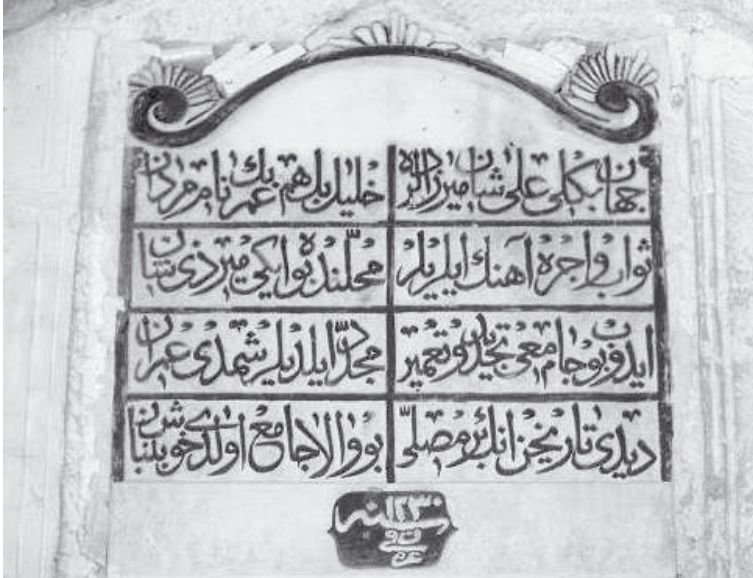 جهان بكلى على شان ميرزاده لر خليل بك هم عمر بك نام مردان
ثواب و اجره آهنك ايلريلر محلنده بو ايكى مير ذى شان
ايدوب بو جامعى تجديد و تعمير مجدّد ايلديلر شمدى عمران
ديدى تاريخن انك بر مصلّى بو والا جامع اولدى
سنه ١٢٣٠